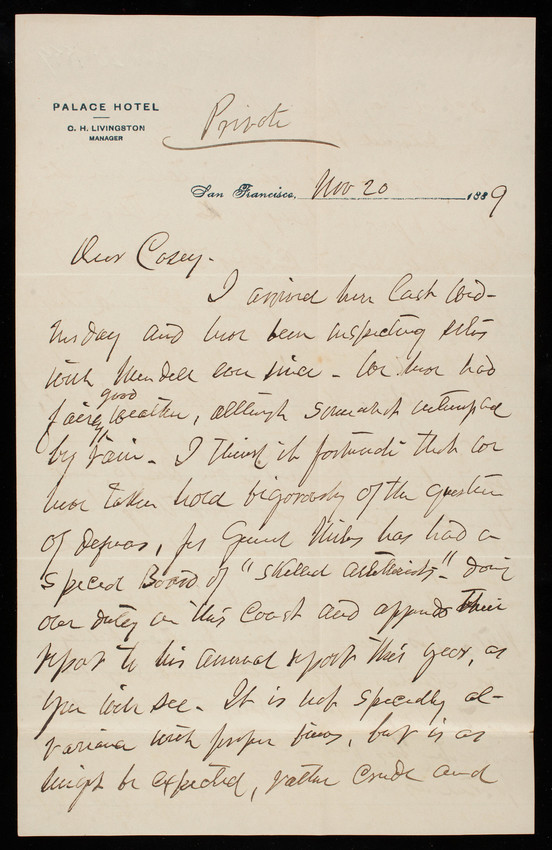 PALACE HOTEL
C. H. LIVINGSTON
MANAGER
Private
San Francisco, Nov 20 1889
Dear Casey.
I arrived here last Wed-
nesday and have been inspecting sites
with Mendell ever since - We have had
fairly good weather, although somewhat interrupted
by rain - I think it fortunate that we
have taken hold vigorously of the question
of defenses, for General Miles has had a
special Board of "skilled artillerists" doing
our duty on this Coast and appends their
report to his annual report this year, as
you will see. It is not specially at
variance with proper views, but is as
might be expected, rather crude and